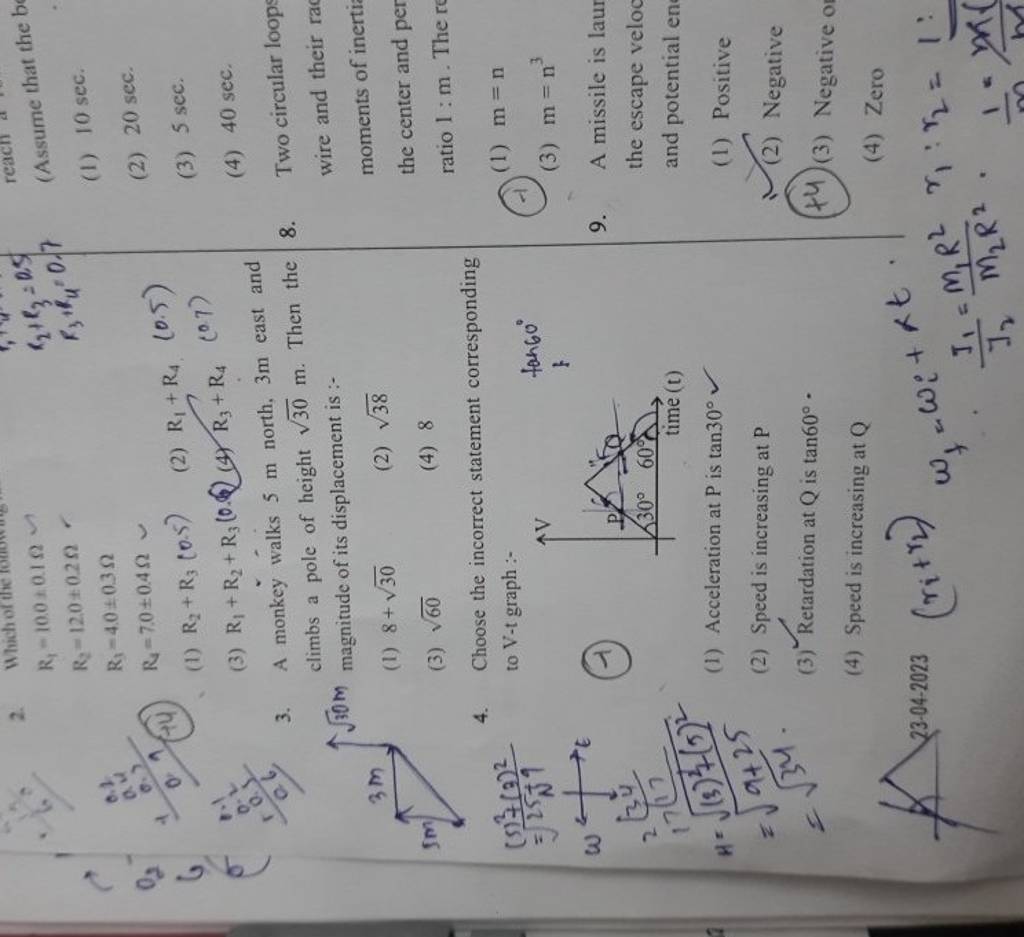 2. Which of the following
R₁ = 10.0 ± 0.1 Ω
R₂ = 12.0 ± 0.2 Ω
R₃ = 4.0 ± 0.3 Ω
R₄ = 7.0 ± 0.4 Ω
(1) R₂ + R₃ (0.5) (2) R₁ + R₄ (0.5)
(3) R₁ + R₂ + R₃ (0.6) (4) R₃ + R₄ (0.7)
R₂+R₃ = 0.5
R₃+R₄ = 0.7
+4
3. A monkey walks 5 m north, 3m east and
climbs a pole of height √30 m. Then the
magnitude of its displacement is :-
(1) 8 + √30 (2) √38
(3) √60 (4) 8
√30 m
3m
5m
4. Choose the incorrect statement corresponding
to V-t graph :-
-1
tan60°
V
P
Q
30° 60°
time (t)
(1) Acceleration at P is tan30°
(2) Speed is increasing at P
(3) Retardation at Q is tan60°
(4) Speed is increasing at Q
(5)²+(3)²
= √25+9
ω
t
2 34
17 17
H = √(3)²+(5)²
= √9+25
= √34.
23-04-2023
reach a
(Assume that the bo
(1) 10 sec.
(2) 20 sec.
(3) 5 sec.
(4) 40 sec.
8. Two circular loops
wire and their rad
moments of inertia
the center and per
ratio 1 : m . The re
(1) m = n
(3) m = n³
-1
9. A missile is laun
the escape veloc
and potential ene
(1) Positive
(2) Negative
(3) Negative or
(4) Zero
+4
(r₁+r₂) ωf = ωi + αt.
I₁/I₂ = M₁R²/M₂R² . r₁ : r₂ = 1: